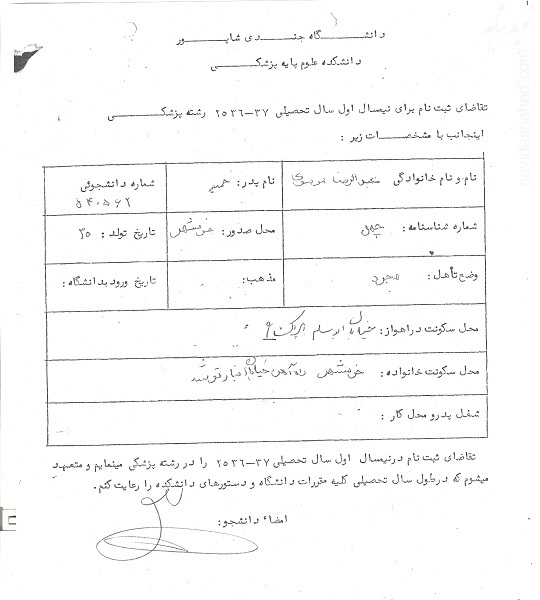 دانشگاه جندی شاپور
دانشکده علوم پایه پزشکی
تقاضای ثبت نام برای نیمسال اول سال تحصیلی ۳۷-۲۵۳۶ رشته پزشکی
اینجانب با مشخصات زیر :
نام و نام خانوادگی عبدالرضا موسوی نام پدر: حمید شماره دانشجوئی
۵۴۰۵۶۲
شماره شناسنامه: چهل محل صدور: خرمشهر تاریخ تولد: ۳۵
وضع تأهل: مجرد مذهب: تاریخ ورود بدانشگاه:
محل سکونت در اهواز: خیابان پلاک ۹
محل سکونت خانواده: خرمشهر راه آهن خیابان انبار
شغل پدر و محل کار :
تقاضای ثبت نام در نیمسال اول سال تحصیلی ۳۷-۲۵۳۶ را در رشته پزشکی مینمایم و متعهد
میشوم که در طول سال تحصیلی کلیه مقررات دانشگاه و دستورهای دانشکده را رعایت کنم.
امضاء دانشجو:
navideshahed.com